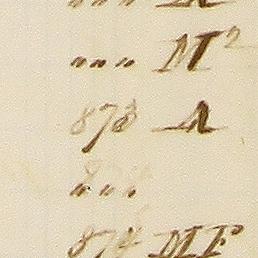 " " " A
" " " M²
873 A
" " "
874 MF